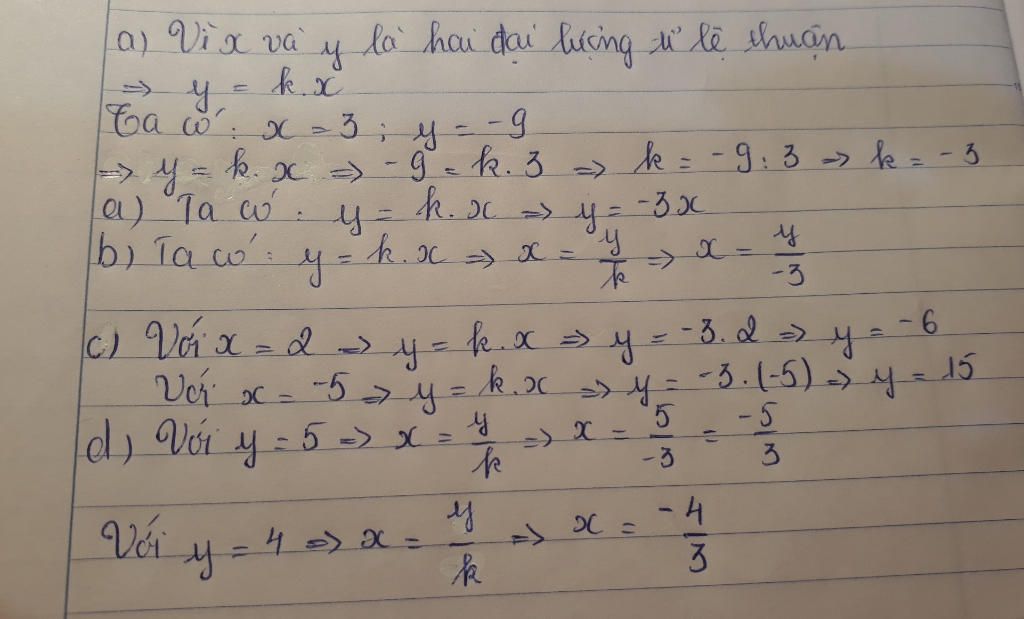 a) Vì x và y là hai đại lượng tỉ lệ thuận
⇒ y = k.x
Ta có: x = 3; y = -9
⇒ y = k.x ⇒ -9 = k.3 ⇒ k = -9:3 ⇒ k = -3
a) Ta có: y = k.x ⇒ y = -3x
b) Ta có: y = k.x ⇒ x = y/k ⇒ x = y/-3
c) Với x = 2 ⇒ y = k.x ⇒ y = -3.2 ⇒ y = -6
Với x = -5 ⇒ y = k.x ⇒ y = -3.(-5) ⇒ y = 15
d) Với y = 5 ⇒ x = y/k ⇒ x = 5/-3 = -5/3
Với y = 4 ⇒ x = y/k ⇒ x = -4/3